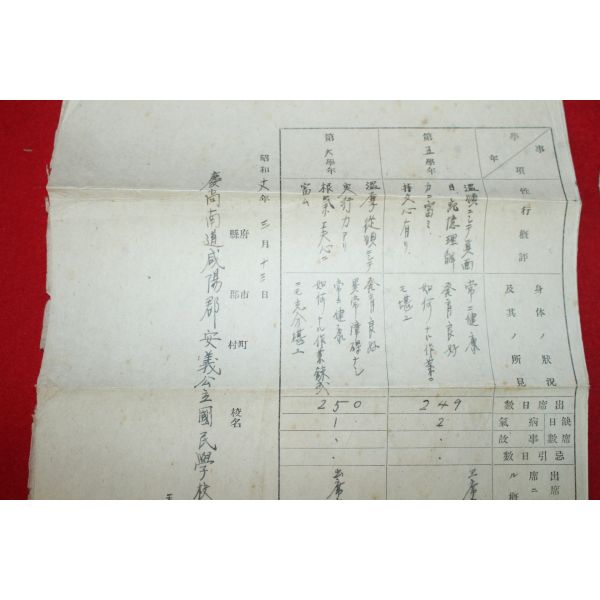 事項
學年
性行概評
身体ノ狀況
及其ノ所見
出席日數
缺席日數
病氣
事故
忌引日數
出席ニ
ル概
第五學年
溫順ニシテ眞面
目、記憶理解
力ニ富ミ、
持久心有リ
常ニ健康
發育良好
如何ナル作業ニ
モ堪ユ
249
2
第六學年
溫厚從順ニシテ
實行力アリ
根氣ト工夫心ニ
富ム
發育良好
異常障碍ナシ
常ニ健康
如何ナル作業鍊成
ニモ充分堪ユ
250
1
昭和 年 三月 十三日
府縣 市郡 町村 校名
慶尚南道咸陽郡安義公立國民學校